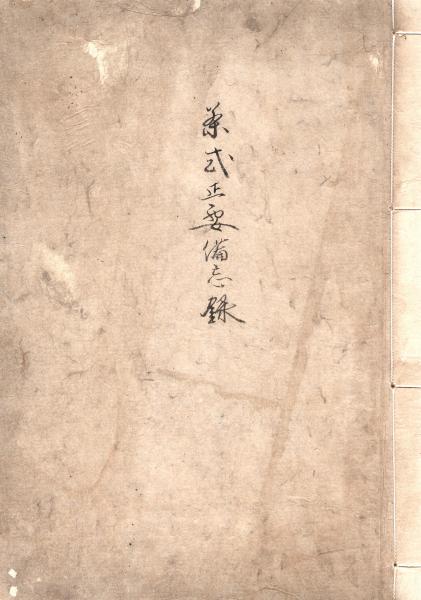 茶式正要備忘録